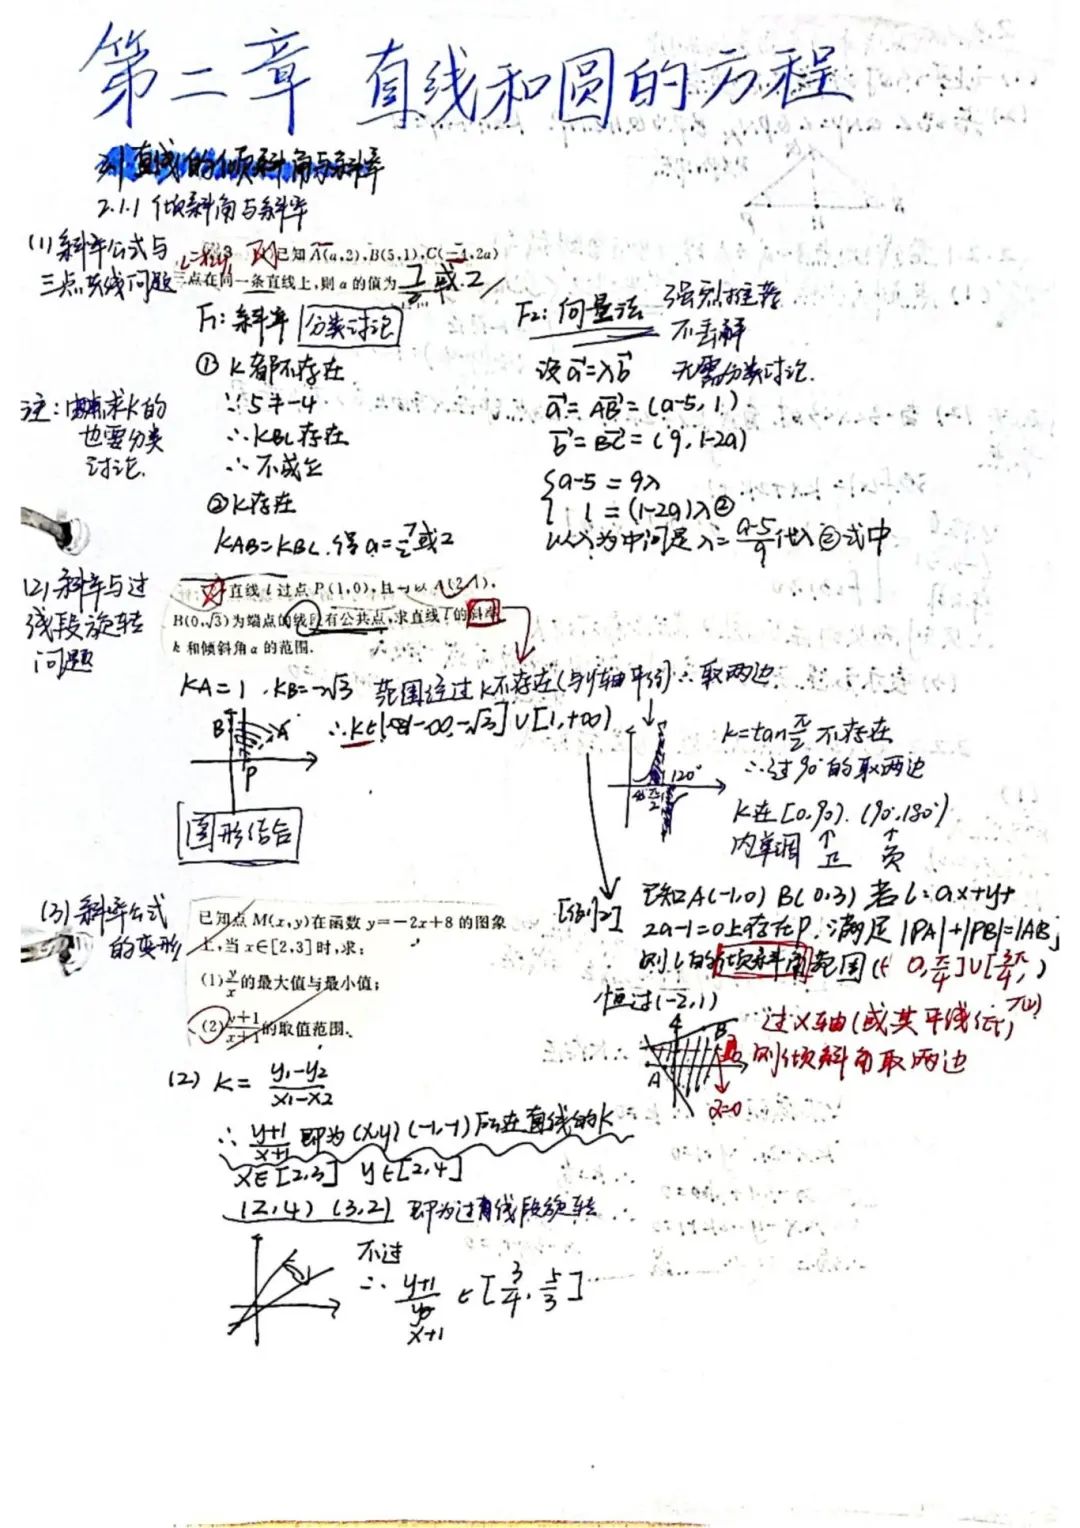 第二章 直线和圆的方程
2.1 直线的倾斜角与斜率
2.1.1 倾斜角与斜率
(1) 斜率公式与
三点共线问题
已知A(a,2),B(5,1),C(-4,2a)
三点在同一条直线上,则a的值为 7/2 或 2
F1: 斜率 分类讨论
① K都不存在
∵5≠-4
∴KBC存在
∴不成立
②K存在
KAB=KBC.得a=7/2或2
注:求K的
也需分类
讨论.
F2: 向量法
强烈推荐
不丢解
无需分类讨论.
设a⃗=λb⃗
a⃗=AB⃗=(a-5,1)
b⃗=BC⃗=(9,1-2a)
{a-5=9λ
1=(1-2a)λ②
以λ为中间是λ=(a-5)/9代入②式中
(2) 斜率与过
线段旋转
问题
直线l过点P(1,0),且与以A(2,1),
B(0,√3)为端点的线段有公共点,求直线l的斜率
k和倾斜角α的范围.
KA=1,KB=-√3 范围经过K不存在(与y轴平行)∴取两边
∴K∈(-∞,-√3]∪[1,+∞)
B A
P
图形结合
45 π/2 120°
K=tanπ/2不存在
∴过90°的取两边
K在[0,90).(90°,180°)
内单调 ↑正 ↑负
(3) 斜率公式
的变形
已知点M(x,y)在函数y=-2x+8的图象
上,当x∈[2,3]时,求:
(1)y/x的最大值与最小值;
(2)(y+1)/(x+1)的取值范围.
[例2] 已知A(-1,0) B(0,3) 若l:ax+y+
2a-1=0上存在P,满足|PA|+|PB|=|AB|
则l的倾斜角范围([0,π/4]∪[3π/4,π))
恒过(-2,1)
A B
α=0
过x轴(或其平行线)
则倾斜角取两边
(2) K=(y1-y2)/(x1-x2)
∴(y+1)/(x+1)即为(x,y)(-1,-1)所在直线的K
x∈[2,3] y∈[2,4]
(2,4) (3,2) 即为过线段旋转
不过
∴(y+1)/(x+1)∈[3/4,5/3]